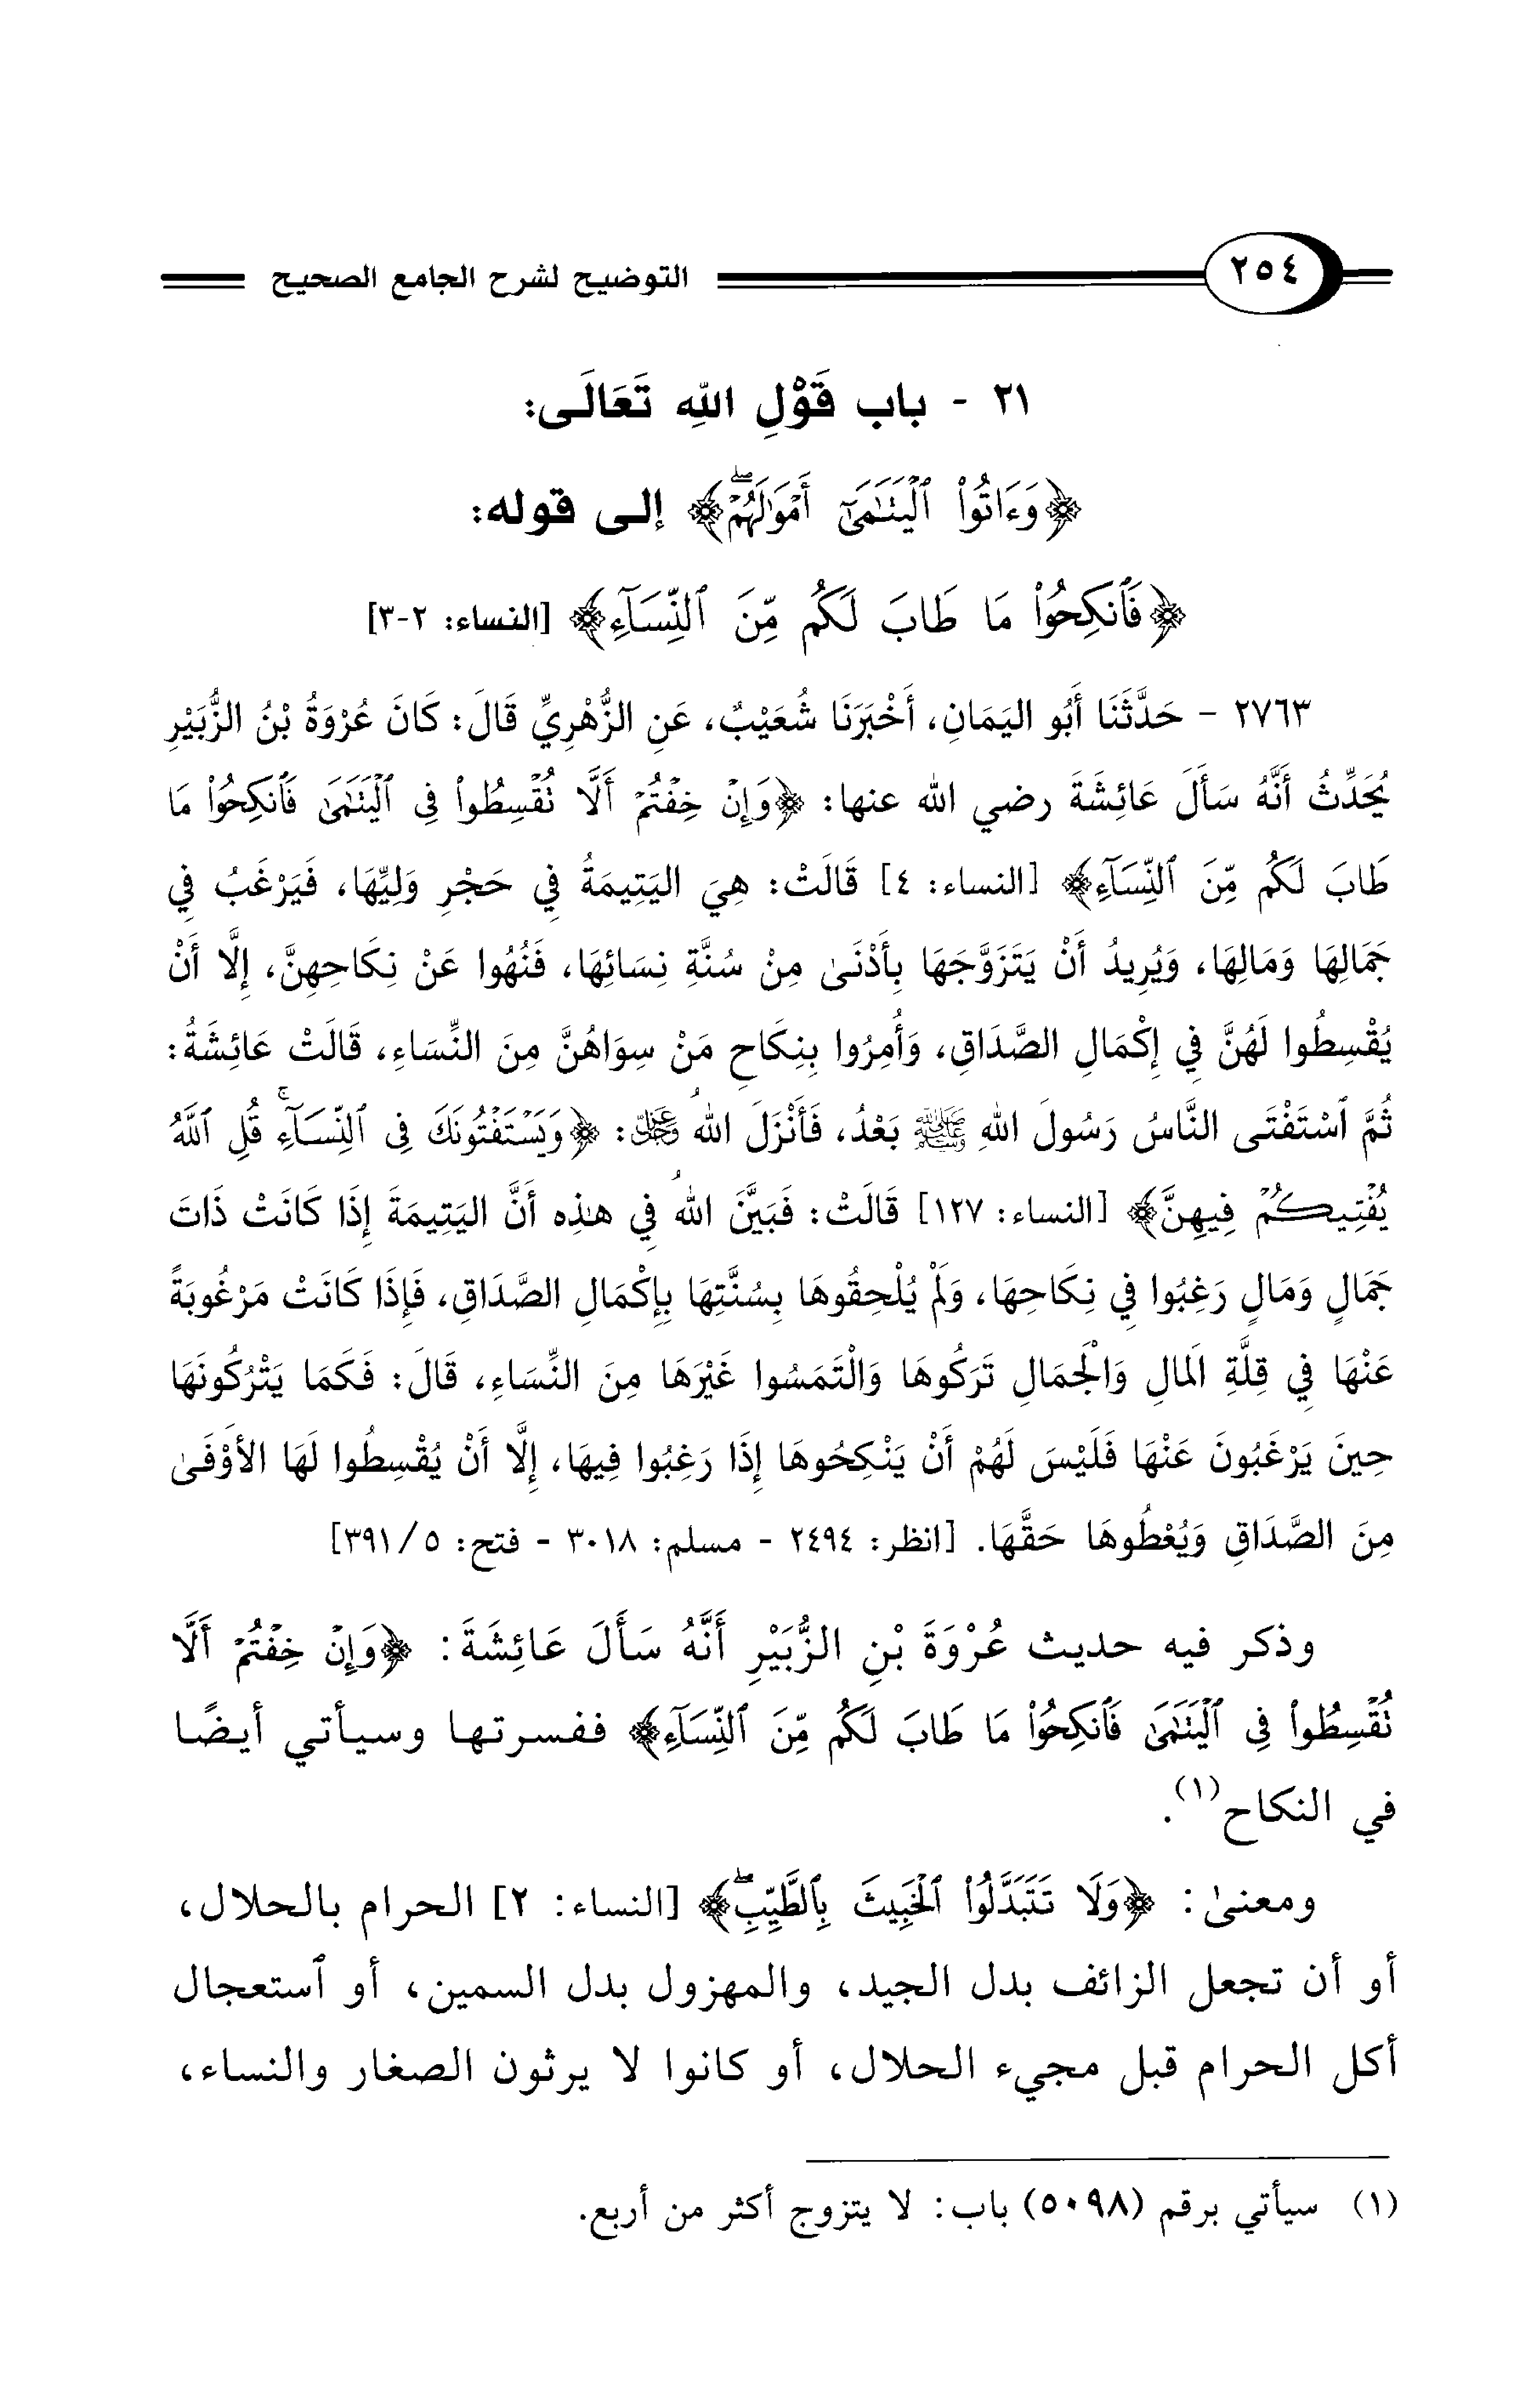 ٢٥٤ التوضيح لشرح الجامع الصحيح
٢١ - باب قَوْلِ اللهِ تَعَالَى:
﴿وَءَاتُوا۟ ٱلْيَتَـٰمَىٰٓ أَمْوَٰلَهُمْ ۖ﴾ إلى قوله:
﴿فَٱنكِحُوا۟ مَا طَابَ لَكُم مِّنَ ٱلنِّسَآءِ﴾ [النساء: ٢-٣]
٢٧٦٣ - حَدَّثَنَا أَبُو اليَمَانِ، أَخْبَرَنَا شُعَيْبٌ، عَنِ الزُّهْرِيِّ قَالَ: كَانَ عُرْوَةُ بْنُ الزُّبَيْرِ
يُحَدِّثُ أَنَّهُ سَأَلَ عَائِشَةَ رضي الله عنها: ﴿وَإِنْ خِفْتُمْ أَلَّا تُقْسِطُوا۟ فِى ٱلْيَتَـٰمَىٰ فَٱنكِحُوا۟ مَا
طَابَ لَكُم مِّنَ ٱلنِّسَآءِ﴾ [النساء: ٤] قَالَتْ: هِيَ اليَتِيمَةُ فِي حَجْرِ وَلِيِّهَا، فَيَرْغَبُ فِي
جَمَالِهَا وَمَالِهَا، وَيُرِيدُ أَنْ يَتَزَوَّجَهَا بِأَدْنَىٰ مِنْ سُنَّةِ نِسَائِهَا، فَنُهُوا عَنْ نِكَاحِهِنَّ، إِلَّا أَنْ
يُقْسِطُوا لَهُنَّ فِي إِكْمَالِ الصَّدَاقِ، وَأُمِرُوا بِنِكَاحِ مَنْ سِوَاهُنَّ مِنَ النِّسَاءِ، قَالَتْ عَائِشَةُ:
ثُمَّ ٱسْتَفْتَى النَّاسُ رَسُولَ اللهِ ﷺ بَعْدُ، فَأَنْزَلَ اللهُ عَزَّ وَجَلَّ: ﴿وَيَسْتَفْتُونَكَ فِى ٱلنِّسَآءِ ۖ قُلِ ٱللَّهُ
يُفْتِيكُمْ فِيهِنَّ﴾ [النساء: ١٢٧] قَالَتْ: فَبَيَّنَ اللهُ فِي هٰذِه أَنَّ اليَتِيمَةَ إِذَا كَانَتْ ذَاتَ
جَمَالٍ وَمَالٍ رَغِبُوا فِي نِكَاحِهَا، وَلَمْ يُلْحِقُوهَا بِسُنَّتِهَا بِإِكْمَالِ الصَّدَاقِ، فَإِذَا كَانَتْ مَرْغُوبَةً
عَنْهَا فِي قِلَّةِ المَالِ وَالْجَمَالِ تَرَكُوهَا وَالْتَمَسُوا غَيْرَهَا مِنَ النِّسَاءِ، قَالَ: فَكَمَا يَتْرُكُونَهَا
حِينَ يَرْغَبُونَ عَنْهَا فَلَيْسَ لَهُمْ أَنْ يَنْكِحُوهَا إِذَا رَغِبُوا فِيهَا، إِلَّا أَنْ يُقْسِطُوا لَهَا الأَوْفَىٰ
مِنَ الصَّدَاقِ وَيُعْطُوهَا حَقَّهَا. [انظر: ٢٤٩٤ - مسلم: ٣٠١٨ - فتح: ٥/ ٣٩١]
وذكر فيه حديث عُرْوَةَ بْنِ الزُّبَيْرِ أَنَّهُ سَأَلَ عَائِشَةَ: ﴿وَإِنْ خِفْتُمْ أَلَّا
تُقْسِطُوا۟ فِى ٱلْيَتَـٰمَىٰ فَٱنكِحُوا۟ مَا طَابَ لَكُم مِّنَ ٱلنِّسَآءِ﴾ ففسرتها وسيأتي أيضًا
في النكاح(١).
ومعنىٰ: ﴿وَلَا تَتَبَدَّلُوا۟ ٱلْخَبِيثَ بِٱلطَّيِّبِ ۖ﴾ [النساء: ٢] الحرام بالحلال،
أو أن تجعل الزائف بدل الجيد، والمهزول بدل السمين، أو ٱستعجال
أكل الحرام قبل مجيء الحلال، أو كانوا لا يرثون الصغار والنساء،
(١) سيأتي برقم (٥٠٩٨) باب: لا يتزوج أكثر من أربع.